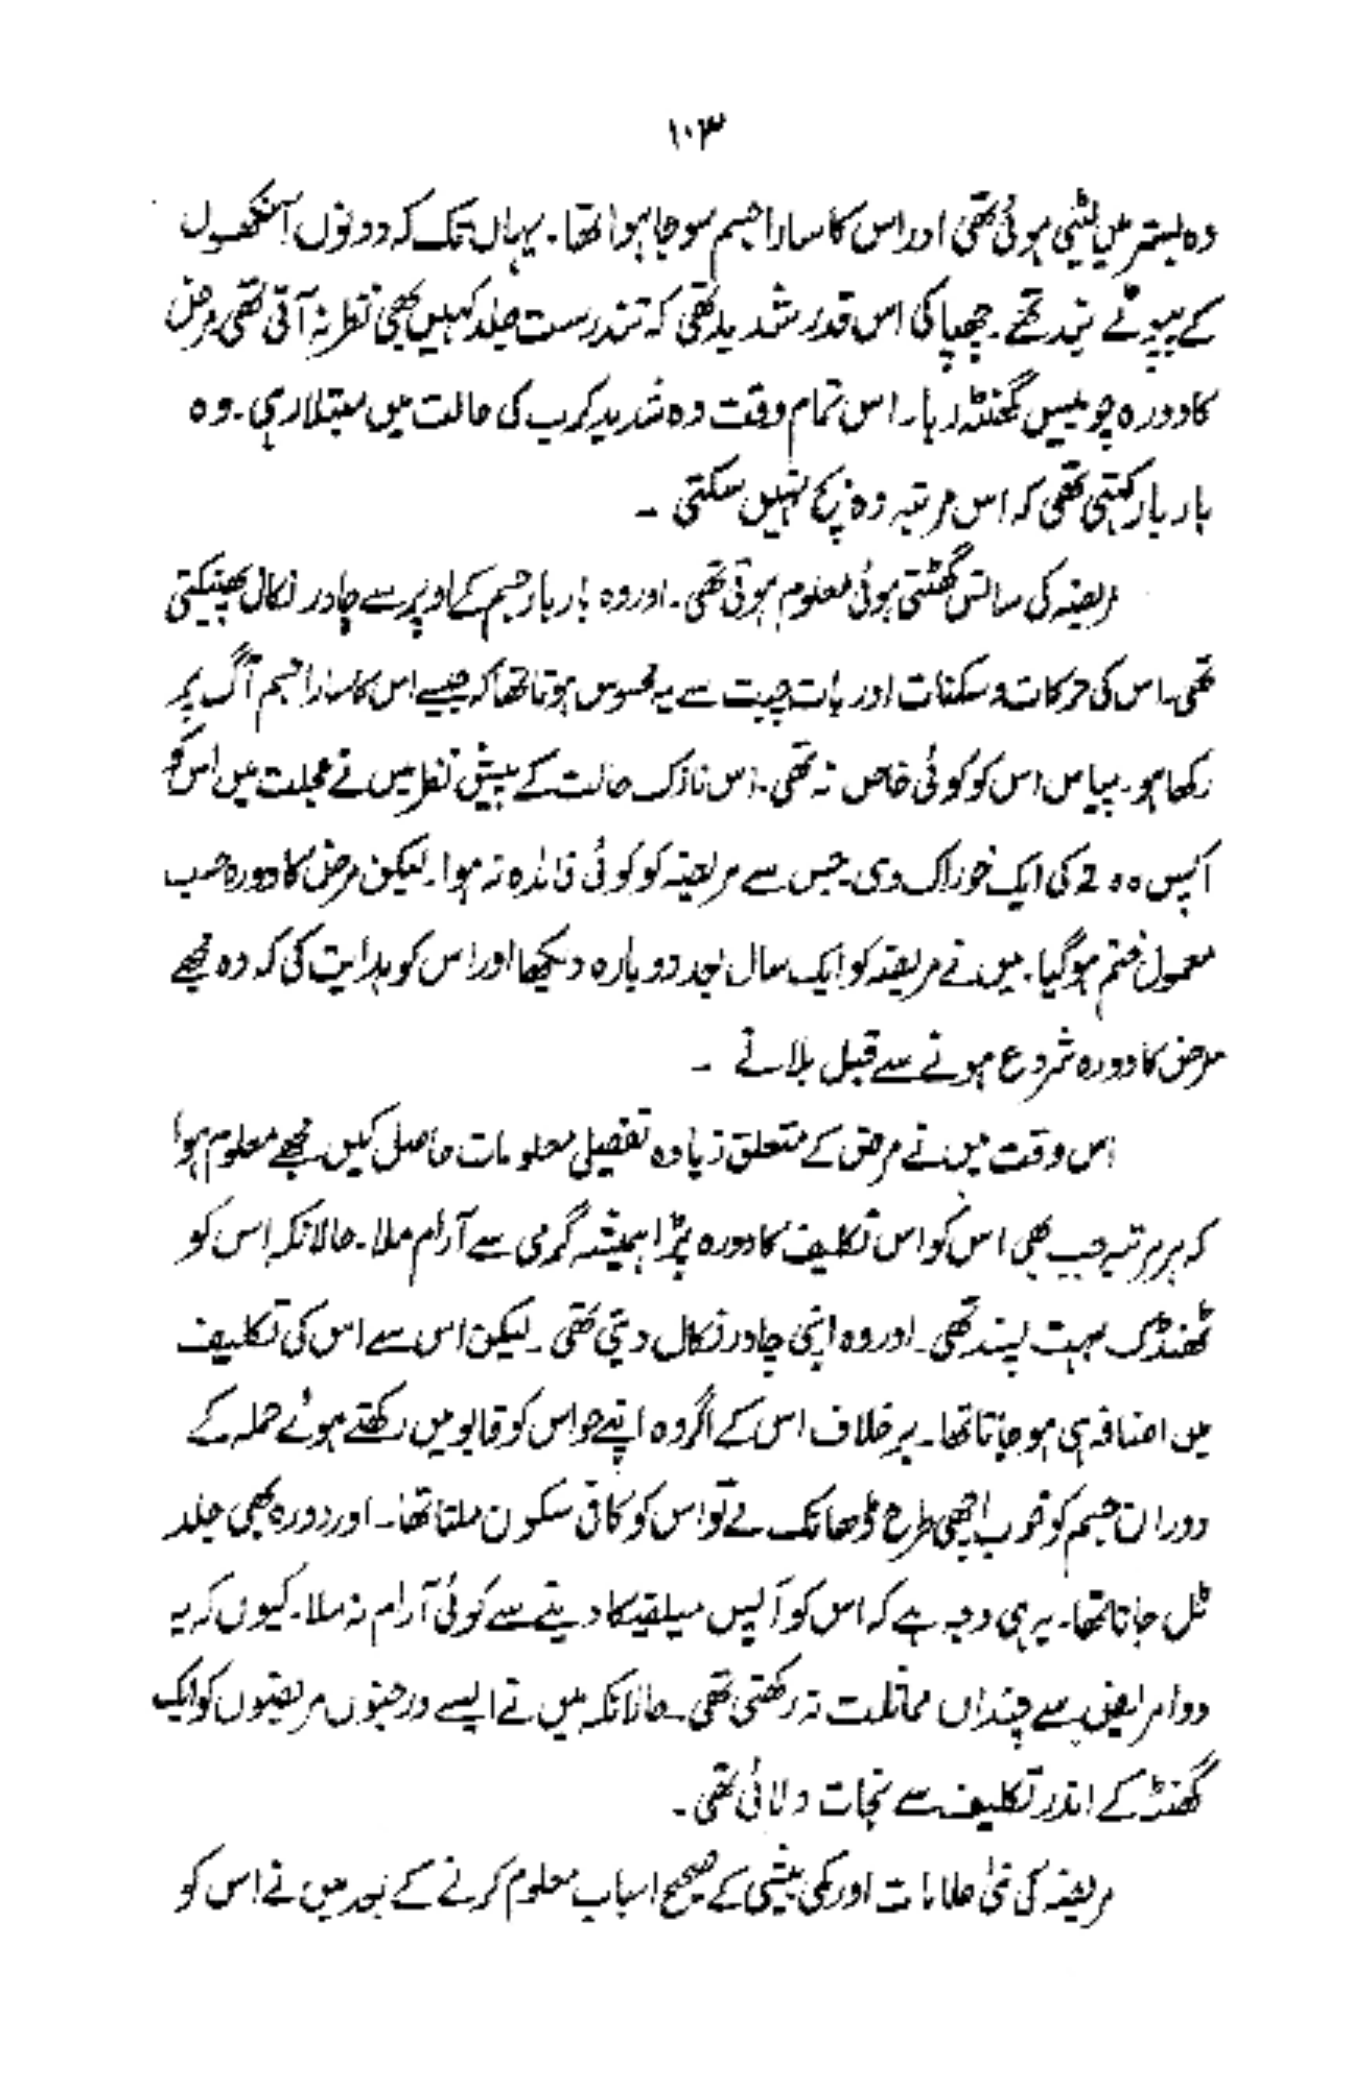 ۱۰۳
وہ بستر میں لیٹی ہوئی تھی اور اس کا سارا جسم سوجا ہوا تھا۔ یہاں تک کہ دونوں آنکھوں
کے پپوٹے بند تھے۔ چھپاکی اس قدر شدید تھی کہ تندرست جلد کہیں بھی نظر نہ آتی تھی مرض
کا دورہ چوبیس گھنٹہ رہا۔ اس تمام وقت وہ شدید کرب کی حالت میں مبتلا رہی۔ وہ
بار بار کہتی تھی کہ اس مرتبہ وہ بچ نہیں سکتی ۔
مریضہ کی سانس گھٹتی ہوئی معلوم ہوتی تھی۔ اور وہ بار بار جسم کے اوپر سے چادر نکال پھینکتی
تھی۔ اس کی حرکات و سکنات اور بات چیت سے یہ محسوس ہوتا تھا کہ جیسے اس کا سارا جسم آگ پر
رکھا ہو۔ پیاس اس کو کوئی خاص نہ تھی۔ اس نازک حالت کے پیش نظر میں نے عجلت میں اس کو
اپس ۲۰۰ کی ایک خوراک دی۔ جس سے مریضہ کو کوئی فائدہ نہ ہوا۔ لیکن مرض کا دورہ حسب
معمول ختم ہو گیا۔ میں نے مریضہ کو ایک سال بعد دوبارہ دیکھا اور اس کو ہدایت کی کہ وہ مجھے
مرض کا دورہ شروع ہونے سے قبل بلائے ۔
اس وقت میں نے مرض کے متعلق زیادہ تفصیلی معلومات حاصل کیں۔ مجھے معلوم ہوا
کہ ہر مرتبہ جب بھی اس کو اس تکلیف کا دورہ پڑا ہمیشہ گرمی سے آرام ملا۔ حالانکہ اس کو
ٹھنڈک بہت پسند تھی۔ اور وہ اپنی چادر نکال دیتی تھی۔ لیکن اس سے اس کی تکلیف
میں اضافہ ہی ہو جاتا تھا۔ برخلاف اس کے اگر وہ اپنے حواس کو قابو میں رکھتے ہوئے حملہ کے
دوران جسم کو خوب اچھی طرح ڈھانک لے تو اس کو کافی سکون ملتا تھا۔ اور دورہ بھی جلد
ٹل جاتا تھا۔ یہ ہی وجہ ہے کہ اس کو اپس میلیفیکا دینے سے کوئی آرام نہ ملا۔ کیوں کہ یہ
دوا مریض سے چنداں مماثلت نہ رکھتی تھی۔ حالانکہ میں نے ایسے درجنوں مریضوں کو ایک
گھنٹہ کے اندر تکلیف سے نجات دلائی تھی۔
مریضہ کی نئی علامات اور کمی بیشی کے صحیح اسباب معلوم کرنے کے بعد میں نے اس کو